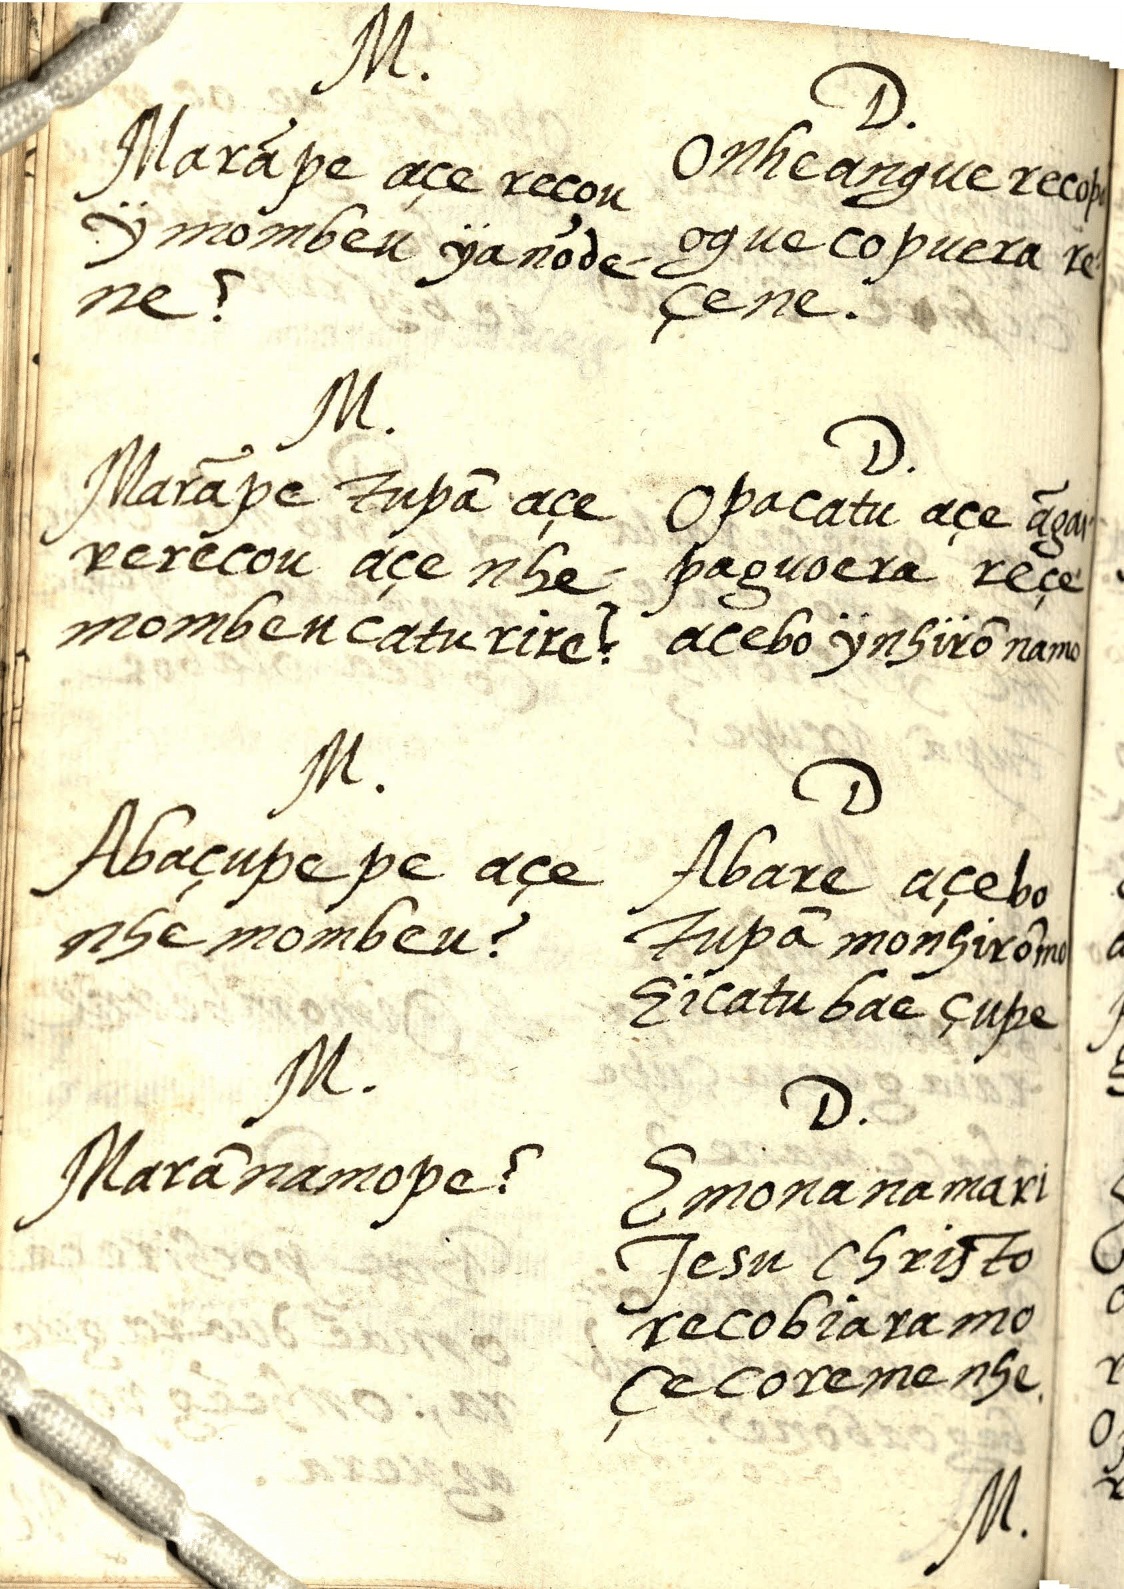 M.
Marãpe açe reçou
ÿ mombeu ÿanõde-
ne?
D.
Onheangue recopu
ogue copuera re-
çene.
M.
Marãpe tupã açe
rerecou açe nhe-
mombeu catu rire?
D.
Opacatu açe ãgai
paguoera reçe
acebo ÿnhÿrõ namo
M.
Abaçupe pe açe
nhe mombeu?
D
Abare açebo
tupã monhirõmo
Eicatu bae çupe
M.
Marãnamope?
D.
Emonanamari
Jesu Christo
recobiaramo
çecoreme nhe.
M.